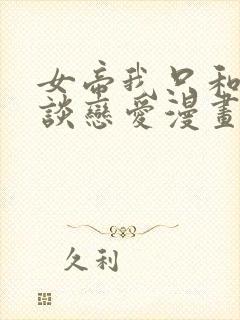 女帝我只和
談戀愛漫畫
久利